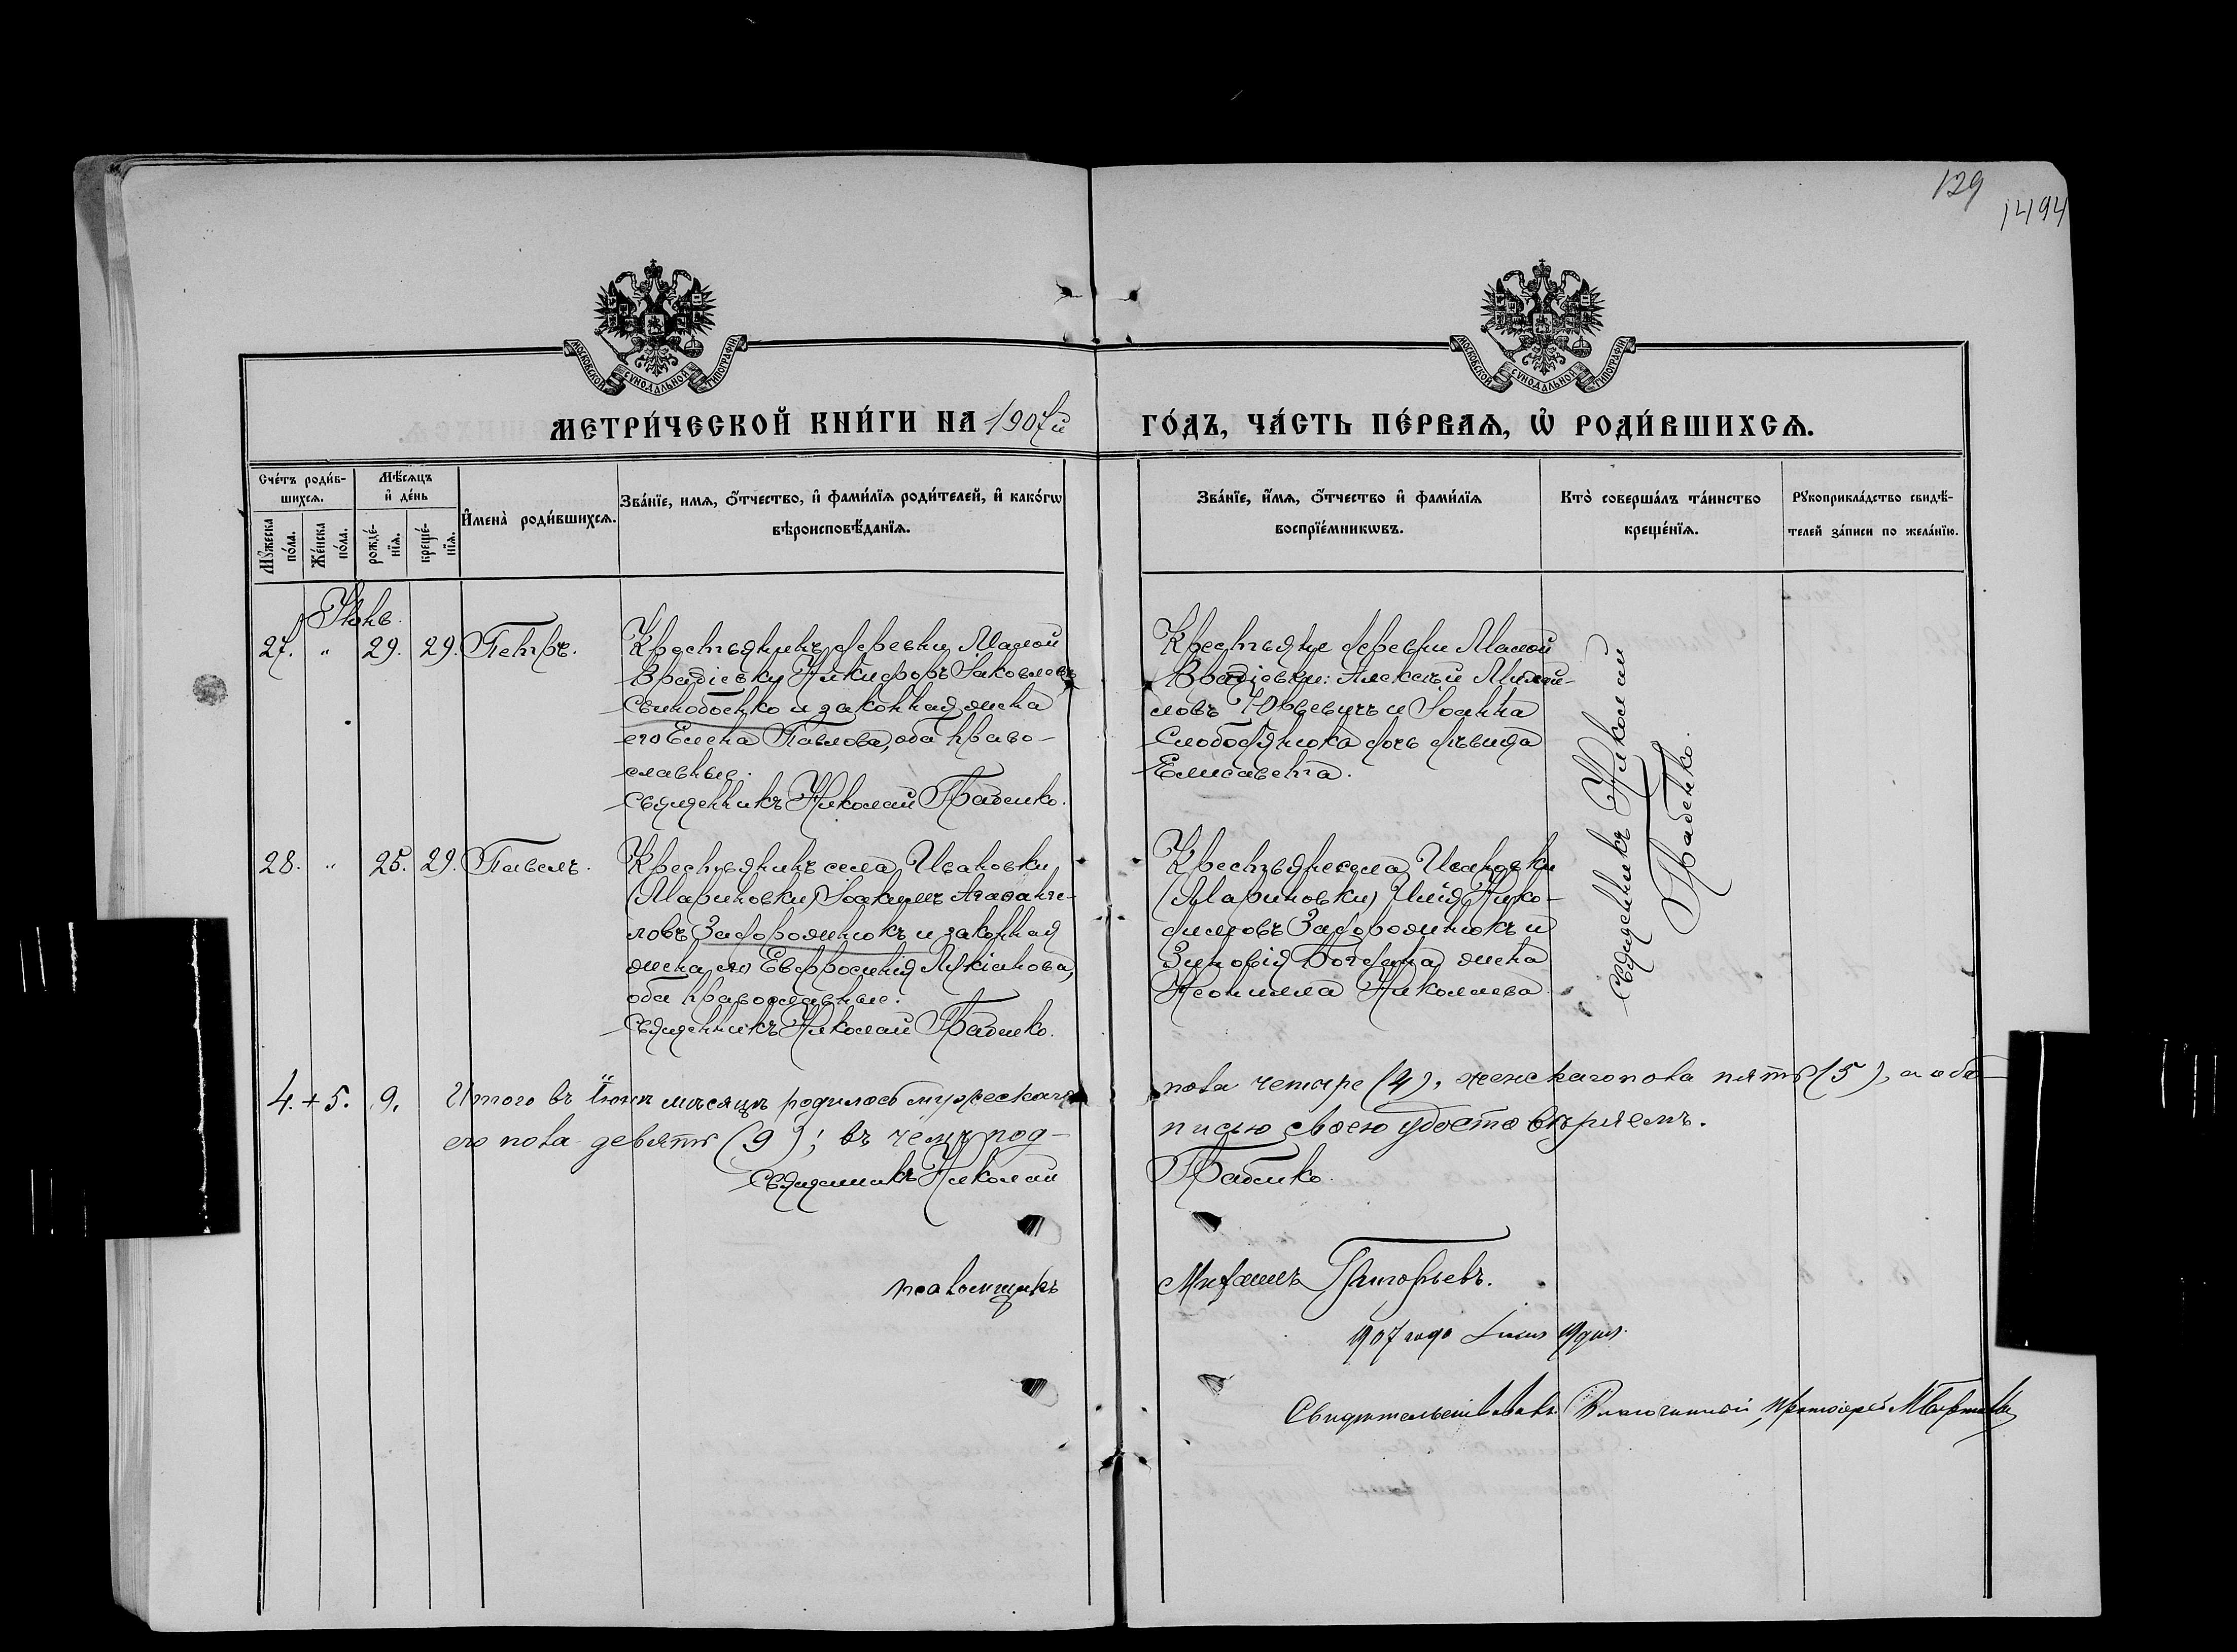 129
1494
МОСКОВСКОЙ СѴНОДАЛЬНОЙ ТИПОГРАФІИ
МОСКОВСКОЙ СѴНОДАЛЬНОЙ ТИПОГРАФІИ
МЕТРИ́ЧЕСКОЙ КНИ́ГИ НА 1907й
ГО́ДЪ, ЧА́СТЬ ПЕ́РВАѦ, Ѡ҆ РОДИ́ВШИХСѦ.
Сче́тъ роди́в-
шихсѧ.
Мѣ́сѧцъ
и҆ де́нь
Мꙋ́жеска
по́ла.
Же́нска
по́ла.
рожде́-
нїѧ.
креще́-
нїѧ.
И҆мена̀ роди́вшихсѧ.
Зва́нїе, имѧ, о҆́тчество, и҆ фами́лїѧ роди́телей, и҆ како́гѡ
вѣроисповѣ́данїѧ.
Зва́нїе, и҆́мѧ, о҆́тчество и҆ фами́лїѧ
воспрїе́мникѡвъ.
Кто̀ соверша́лъ та́инство
креще́нїѧ.
Рꙋкоприкла́дство свидѣ́-
телей за́писи по жела́нїю.
Іюнь.
27. " 29. 29. Петръ.
Крестьянинъ деревни Малой
Врадіевки Никифоръ Іаковлевъ
Свинобоенко и законная жена
его Елена Павлова, оба право-
славные.
Священникъ Николай Грабенко.
Крестьяне деревни Малой
Врадіевки: Алексѣй Михаи-
ловъ Юрьевичъ и Іоанна
Слободянюка дочь дѣвица
Елисавета.
Священникъ Николай
Грабенко.
28. " 25. 29. Павелъ.
Крестьянинъ села Ивановки
(Мариновки) Іоакимъ Агафанге-
ловъ Загороднюкъ и законная
жена его Евфросинія Лукіанова,
оба православные.
Священникъ Николай Грабенко.
Крестьяне села Ивановки
(Мариновки) Илія Нико-
димовъ Загороднюкъ и
Зиновія жена
Неонилла Николаева.
4. + 5. 9. Итого въ Іюнѣ мѣсяцѣ родилось мужескаго
пола четыре (4), женскаго пола пять (5), а обо-
его пола девять (9); въ чемъ под-
писью своею удостовѣряемъ.
Священникъ Николай
Грабенко.
псаломщикъ
Михаилъ Григорьевъ.
1907 года 19 дня.
Свидѣтельствовалъ Благочинный, Протоіерей